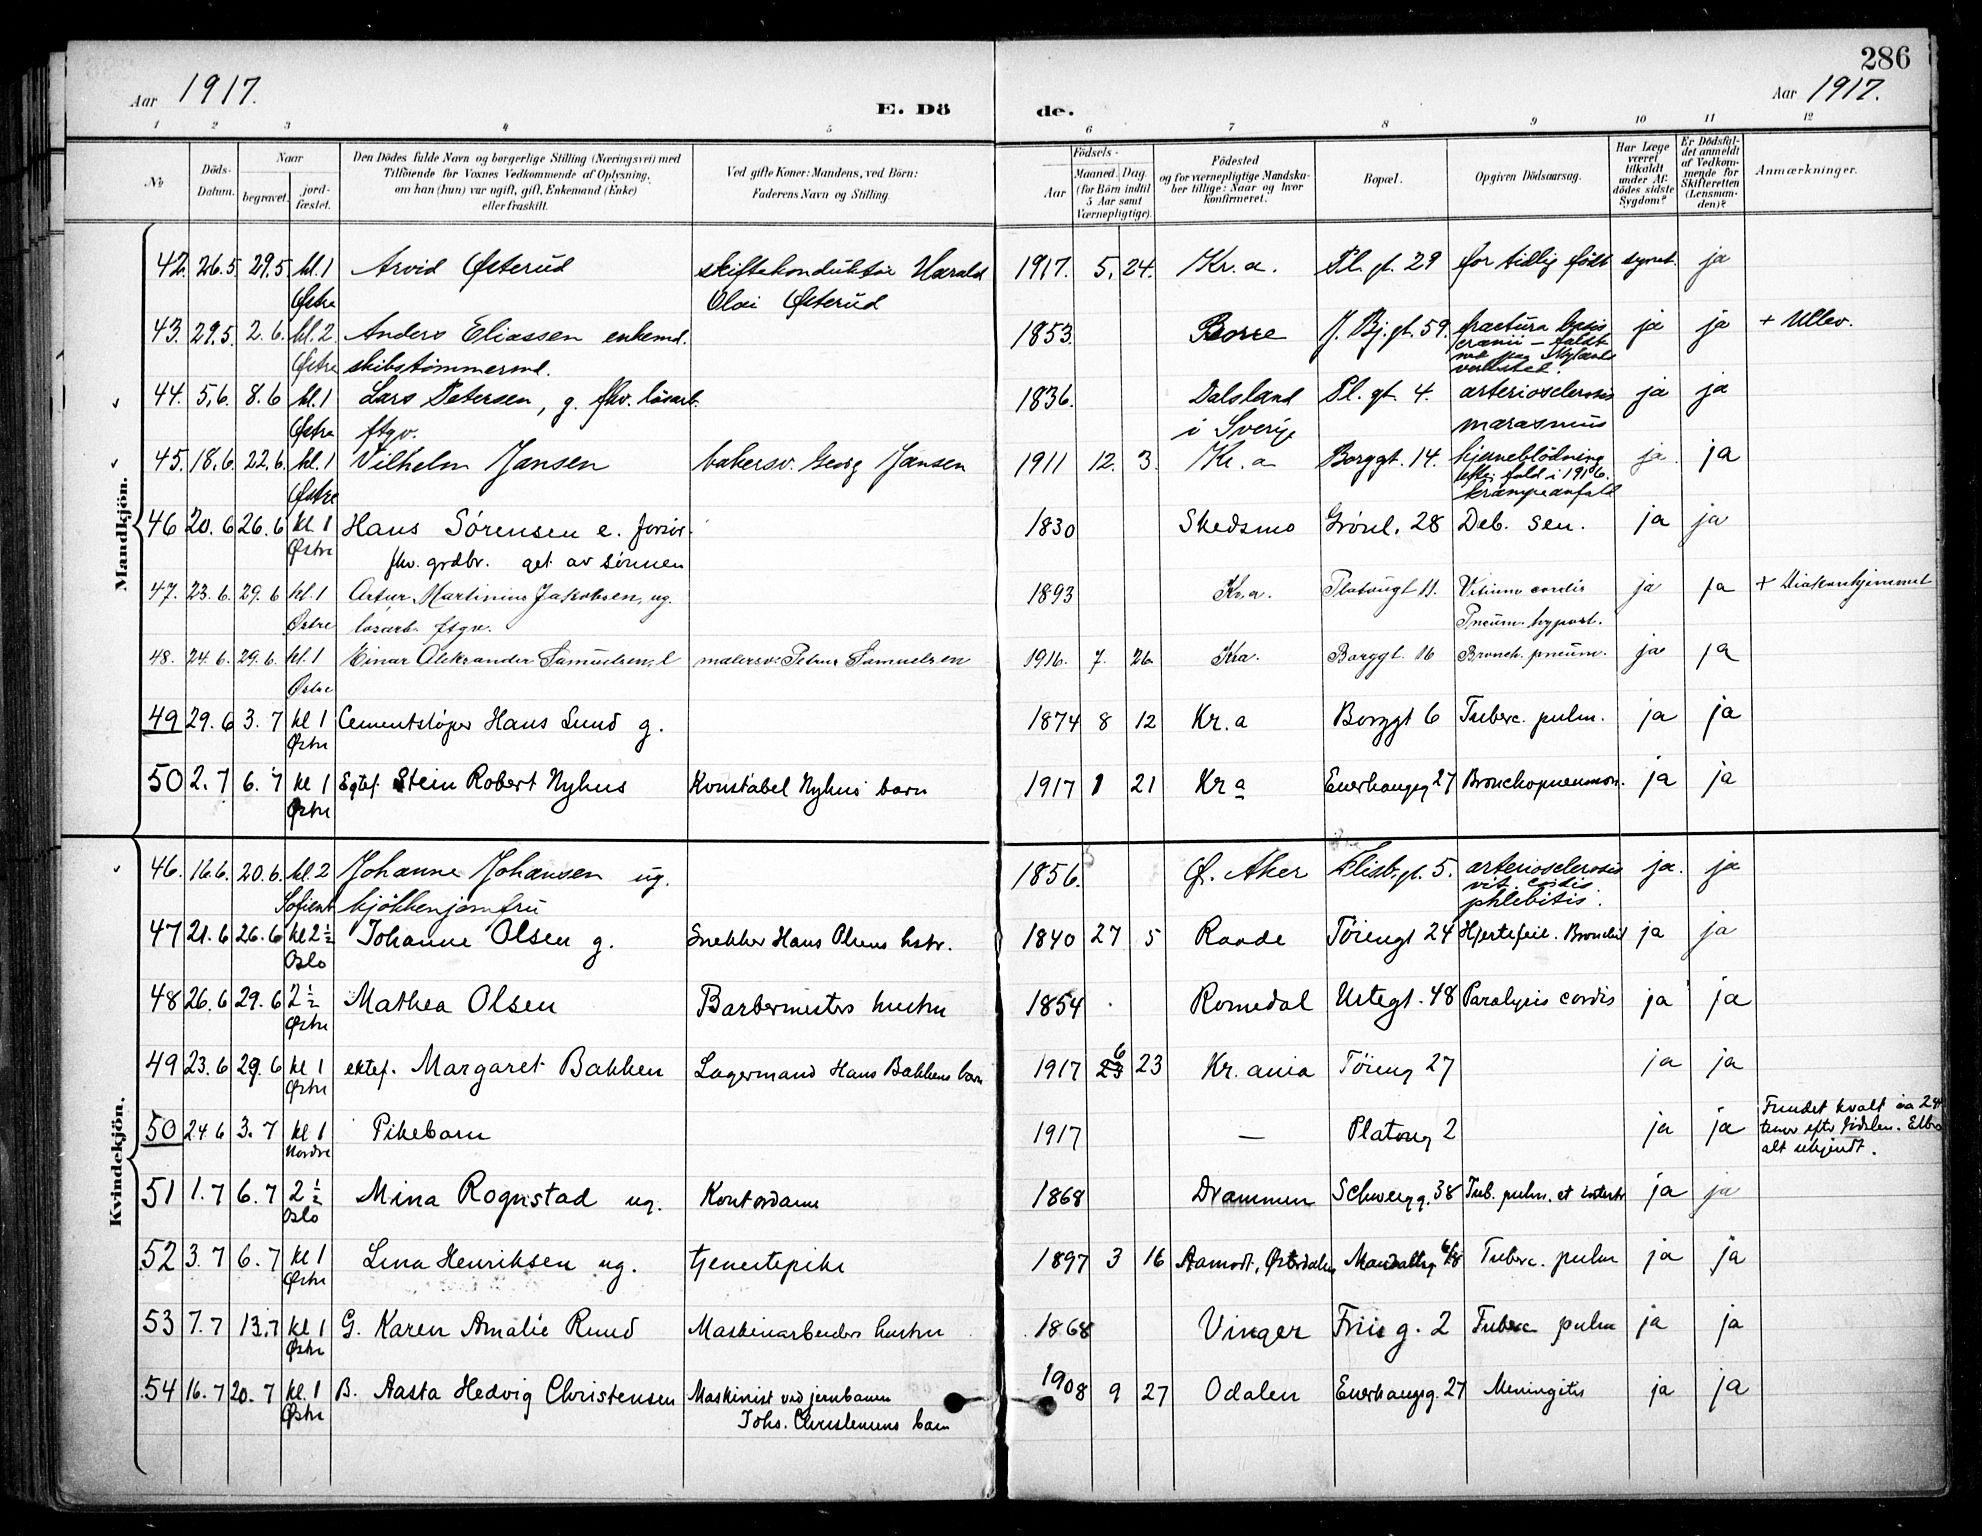 286
Aar 1917.
E. Döde.
Aar 1917.
1 2 3 4 5 6 7 8 9 10 11 12
No
Döds-Datum.
Naar
begravet.
jord-fæstet.
Den Dödes fulde Navn og borgerlige Stilling (Næringsvei) med
Tilföiende for Voxnes Vedkommende af Oplysning,
om han (hun) var ugift, gift, Enkemand (Enke)
eller fraskilt.
Ved gifte Koner: Mandens, ved Börn:
Faderens Navn og Stilling.
Födsels-
Aar
Maaned. Dag.
(for Börn indtil
5 Aar samt
Værnepligtige).
Födested
og for værnepligtige Mandska-
ber tillige: Naar og hvor
konfirmeret.
Bopæl.
Opgiven Dödsaarsag.
Har Læge
været
tilkaldt
under Af-
dödes sidste
Sygdom?
Er Dödsfal-
det anmeldt
af Vedkom-
mende for
Skifteretten
(Lensman-
den)?
Anmærkninger.
Mandkjön.
42. 26.5 29.5 kl.1 Arvid Østerud skiftekonduktør Harald 1917. 5. 24. Kr.a. Pl. gt. 29 for tidlig født ja
Østre Olai Østerud
43. 29.5. 2.6. kl.2 Anders Eliassen enkemd. 1853. Borre J. Bj. gt. 59. fractura basis ja ja + Ullev.
Østre skibstømmermd. cranii – faldt
44. 5.6. 8.6 kl.1 Lars Petersen, g. fhv. løsarb. 1836. Dalsland Pl. gt. 4. arteriosclerosis ja ja
Østre ftgv. i Sverige marasmus
45. 18.6. 22.6. kl.1 Vilhelm Jansen bakersv. Georg Jansen 1911 12. 3. Kr.a Borggt. 14. hjerneblödning ja ja
Østre efter fald i 1916.
krampeanfald
46 20.6 26.6 kl 1 Hans Sörensen e. 1830 Skedsmo Grönl. 28 Deb. sen. ja ja
Østre fhv. grdbr. get. av sönnen
47. 23.6. 29.6 kl.1 Artur Martinius Jakobsen, ug. 1893 Kr.a. Platougt 11. Vitium cordis ja ja + Diakonhjemmet
Østre løsarb. ftgv. Pneum. hypost.
48. 24.6. 29.6. kl.1 Einar Aleksander Samuelsen, malersv. Petrus Samuelsen 1916. 7. 26 Kra. Borggt. 16 Bronch. pneum. ja ja
Østre
49 29.6 3.7 kl 1 Cementstöper Hans Lund g. 1874 8 12 Kr.a Borggt 6 Tuberc. pulm. ja ja
Østre
50 2.7 6.7 kl 1 Egtef. Stein Robert Nyhus Konstabel Nyhus barn 1917 1 21 Kr a Enerhaugg 27 Bronchopneumon. ja ja
Østre
Kvindekjön.
46. 16.6. 20.6. kl.2 Johanne Johansen ug. 1856. Ø. Aker Elisb. gt. 5. arteriosclerosis ja. ja
Sofienb kjökkenjomfru vit. cordis.
phlebitis.
47 21.6 26.6 kl 2½ Johanne Olsen g. Snekker Hans Olsens hstr. 1840 27 5 Raade Töiengt 24 Hjertefeil. Bronchit ja ja
Oslo
48 26.6 29.6 2½ Mathea Olsen Barbermesters hustru 1854 Romedal Urtegt. 48 Paralysis cordis ja ja
Østre
49 23.6 29.6 kl 1 ektef. Margaret Bakken Lagermand Hans Bakkens barn 1917 6 23 23 Kr.ania Töieng 27 ja ja
Østre
50 24.6 3.7 kl 1 Pikebarn 1917 — Platoug 2 ja ja Fundet kvalt ca 24
Nordre timer efter födslen. Ellers
alt ukjendt.
51 1.7 6.7 2½ Mina Rognstad ug. Kontordame 1868 Drammen Schweigg. 38 Tub. pulm. et intest. ja ja
Oslo
52 3.7 6.7 kl 1 Lina Henriksen ug. tjenestepike 1897 3 16 Aamodt, Østerdalen Mandallsg Tuberc. pulm ja ja
Østre
53 7.7 13.7 kl 1 G. Karen Amalie Ruud Maskinarbeiders hustru 1868 Vinger Friis g. 2 Tuberc pulm ja ja
Østre
54 16.7 20.7 kl.1 B. Aasta Hedvig Christensen Maskinist ved jernbanen 1908 9 27 Odalen Enerhaugg. 27 Meningitis ja ja
Østre Johs. Christensens barn